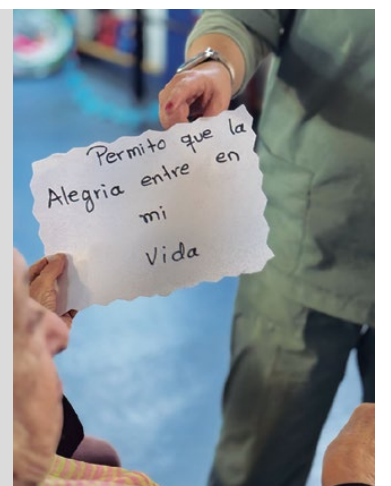 Permito que la
Alegria entre en
mi
Vida